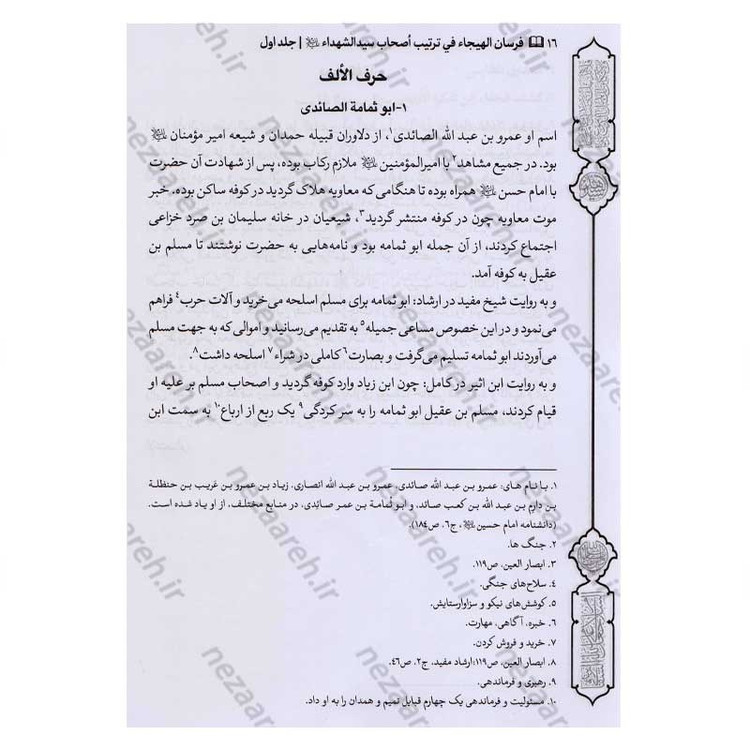 ۱۶ فرسان الهیجاء في ترتیب أصحاب سیدالشهداء | جلد اول
حرف الألف
۱-ابو ثمامة الصائدی
اسم او عمرو بن عبد الله الصائدی۱، از دلاوران قبیله حمدان و شیعه امیر مؤمنان
بود. در جمیع مشاهد۲ با امیرالمؤمنین ملازم رکاب بوده، پس از شهادت آن حضرت
با امام حسن همراه بوده تا هنگامی که معاویه هلاک گردید در کوفه ساکن بوده. خبر
موت معاویه چون در کوفه منتشر گردید۳، شیعیان در خانه سلیمان بن صرد خزاعی
اجتماع کردند، از آن جمله ابو ثمامه بود و نامه‌هایی به حضرت نوشتند تا مسلم بن
عقیل به کوفه آمد.
و به روایت شیخ مفید در ارشاد: ابو ثمامه برای مسلم اسلحه می‌خرید و آلات حرب۴ فراهم
می‌نمود و در این خصوص مساعی جمیله۵ به تقدیم می‌رسانید و اموالی که به جهت مسلم
می‌آوردند ابو ثمامه تسلیم می‌گرفت و بصارت۶ کاملی در شراء۷ اسلحه داشت۸.
و به روایت ابن اثیر در کامل: چون ابن زیاد وارد کوفه گردید و اصحاب مسلم بر علیه او
قیام کردند، مسلم بن عقیل ابو ثمامه را به سر کردگی۹ یک ربع از ارباع۱۰ به سمت ابن
۱. با نام های، عمرو بن عبد الله صائدی، عمرو بن عبد الله انصاری، زیاد بن عمرو بن عریب بن حنظلة
بن دارم بن عبد الله بن کعب صائد، و ابو ثمامة بن عمر صائدی، در منابع مختلف، از او یاد شده است.
(دانشنامه امام حسین، ج۶، ص۱۸۴).
۲. جنگ ها.
۳. ابصار العین، ص۱۱۹.
۴. سلاح‌های جنگی.
۵. کوشش‌های نیکو و سزاوارستایش.
۶. خبره، آگاهی، مهارت.
۷. خرید و فروش کردن.
۸. ابصار العین، ص۱۱۹؛ارشاد مفید، ج۲، ص۴۶.
۹. رهبری و فرماندهی.
۱۰. مسئولیت و فرماندهی یک چهارم قبایل تمیم و همدان را به او داد.
nezaareh.ir